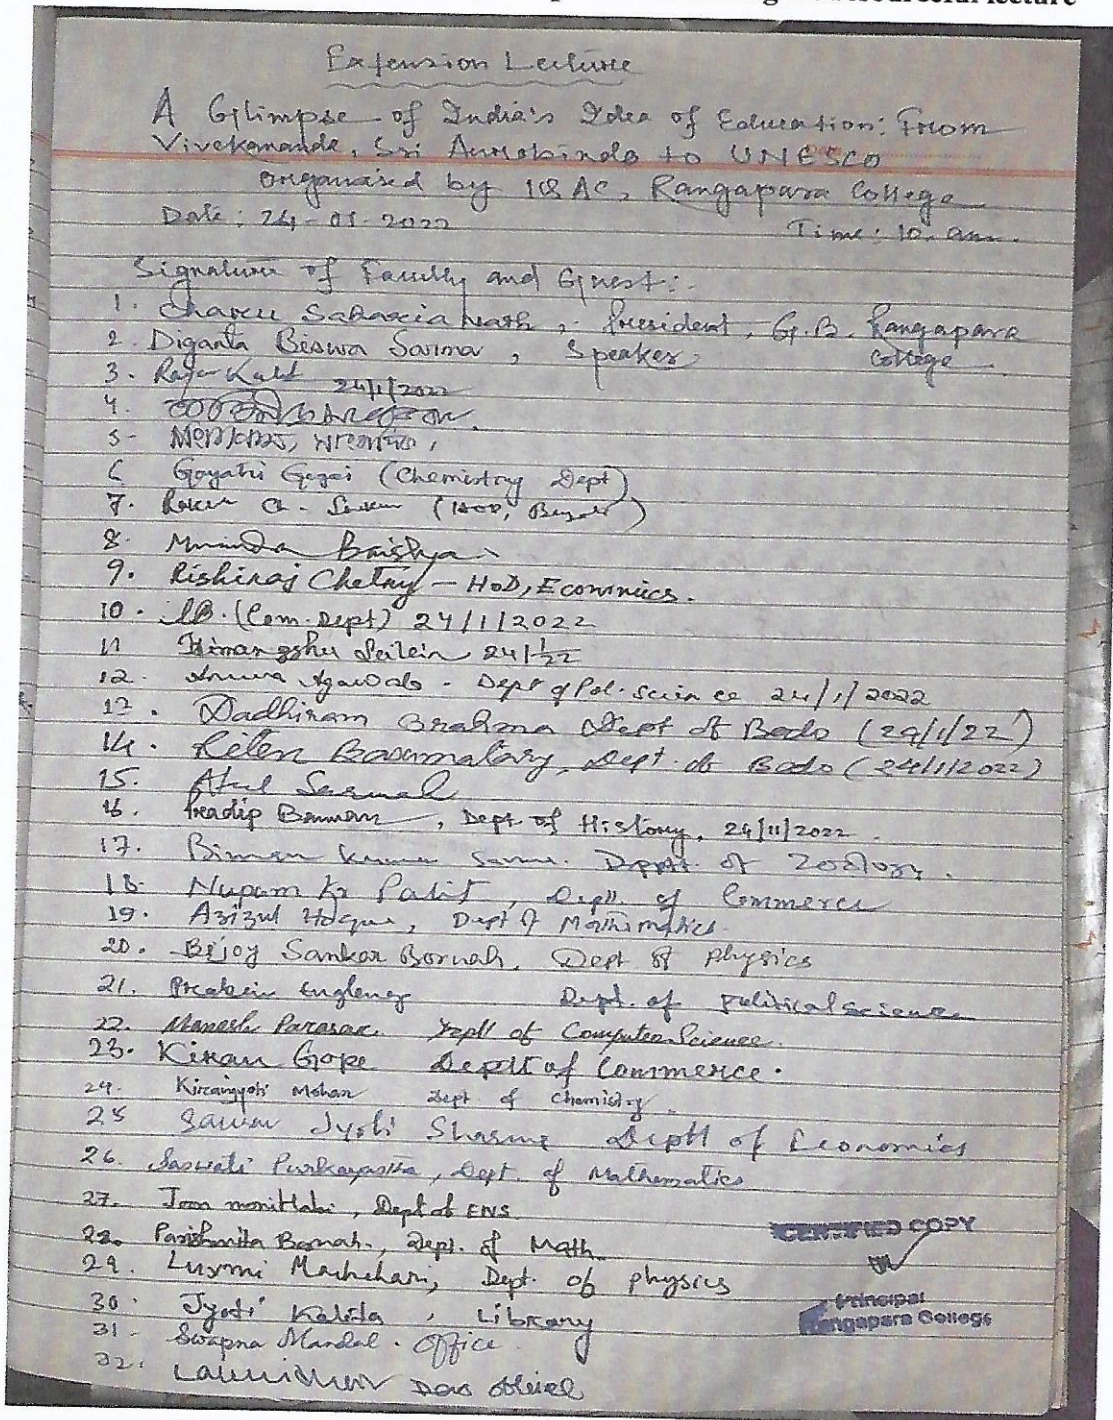 lecture
Extension Lecture
A Glimpse of India's Idea of Education: From
Vivekananda, Sri Aurobindo to UNESCO
organised by IQAC, Rangapara College
Date: 24-01-2022 Time: 10. am.
Signature of Faculty and Guest:-
1. Charu Saharia Nath, President, G.B. Rangapara College
2. Diganta Biswa Sarma, Speaker
3. 24/1/2022
4.
5.
6 Gayatri Gogoi (Chemistry Dept)
7. (HOD,
8. Baishya
9. Rishiraj Chetry - HoD, Economics.
10. (Com. Dept) 24/1/2022
11 Himangshu
12. Agarwala - Dept of Pol. Science 24/1/2022
13. Dadhiram Brahma Dept of Bodo (24/1/22)
14. Riten Basumatary, Dept. of Bodo (24/1/2022)
15. Atul
16. Pradip Barman, Dept. of History, 24/11/2022
17. Kumar Deptt. of Zoology.
18. Nupam Kr Palit, Deptt. of Commerce
19. Azizul Hoque, Dept of Mathematics.
20. Bijoy Sankar Borah, Dept of Physics
21. Dept. of Political Science
22. Manash Parasar. Deptt of Computer Science.
23. Kiran Gope Deptt of Commerce.
24. Kiranjyoti Mohan Dept. of Chemistry.
25 Jyoti Sharma Deptt of Economics
26. Saswati Purkayastha, Dept. of Mathematics
27. Dept of ENS
28. Parishmita Borah, Dept. of Math
29. Luxmi Dept. of physics
30. Jyoti Kalita, Library
31. Swapna Mandal. Office
32.
CERTIFIED COPY
Principal
Rangapara College